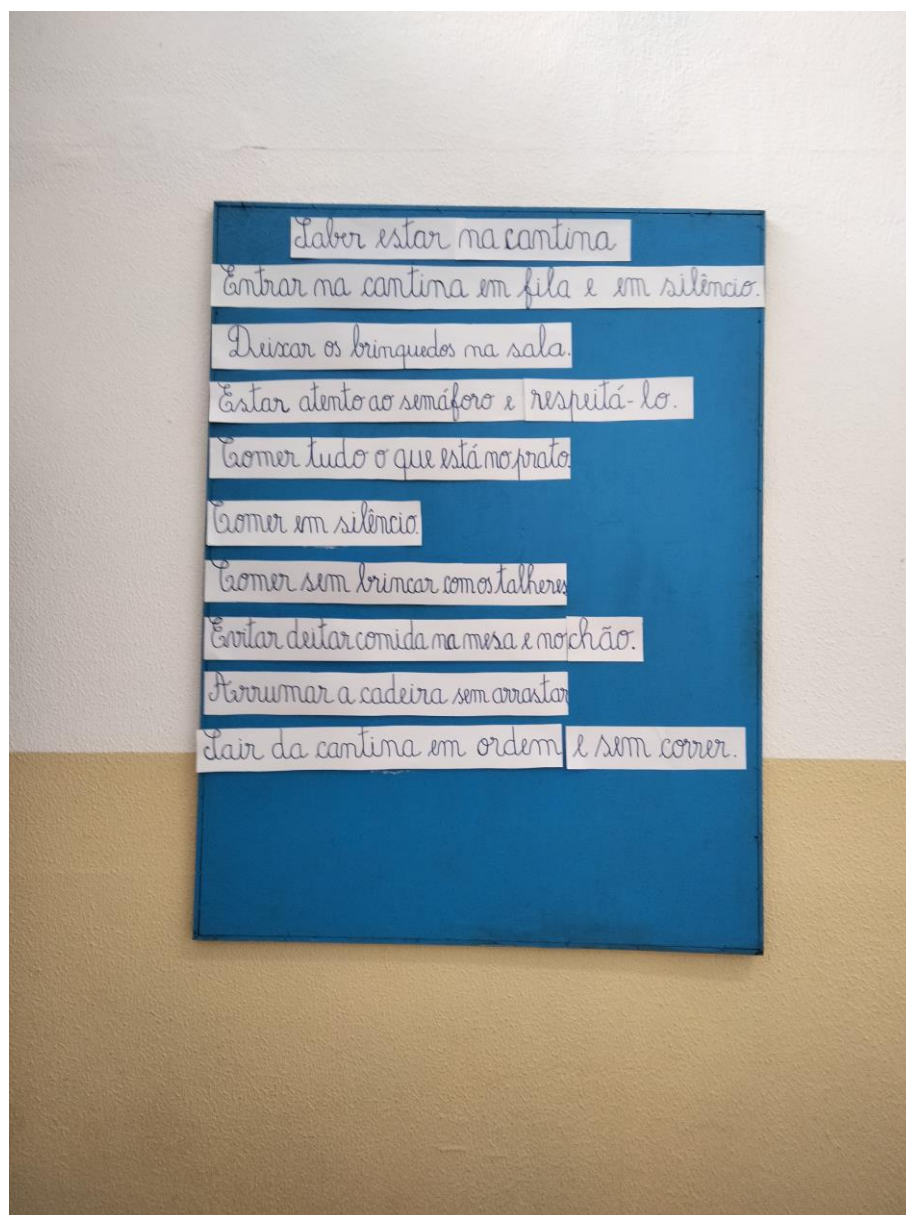 Saber estar na cantina
Entrar na cantina em fila e em silêncio.
Deixar os brinquedos na sala.
Estar atento ao semáforo e respeitá-lo.
Comer tudo o que está no prato.
Comer em silêncio.
Comer sem brincar com os talheres
Evitar deitar comida na mesa e no chão.
Arrumar a cadeira sem arrastar
Sair da cantina em ordem e sem correr.